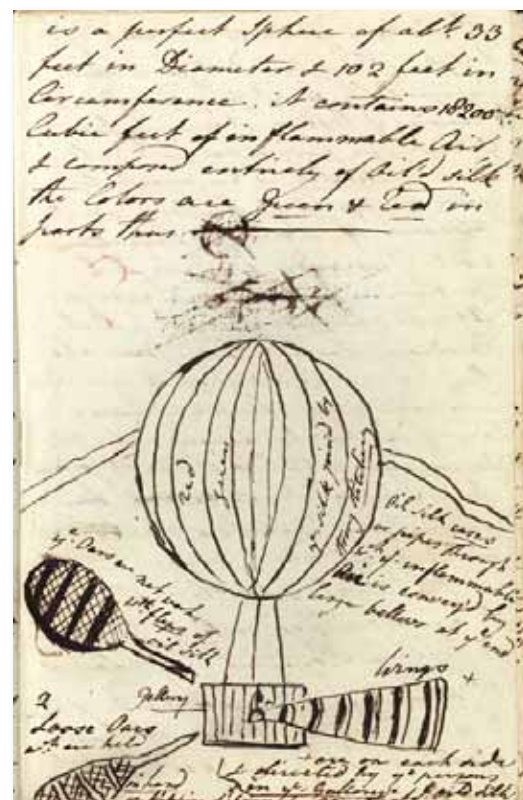 is a perfect Sphere of abt. 33
feet in Diameter & 102 feet in
Circumferance. it contains 18200
Cubic feet of inflammable Air
& composed entirely of Oil'd silk
the Colors are Green & Red in
parts thus
Red
green
ye silk joind by
strong stitching
Oil silk cases
or pipes through
wch. ye inflammable
Air is convey'd by
large bellows at ye end
ye Oars are net work
with flaps of
oil silk
Wings
Gallery
2
Loose Oars
are held
in hand
are on each side
& directed by ye persons
in ye Gallery